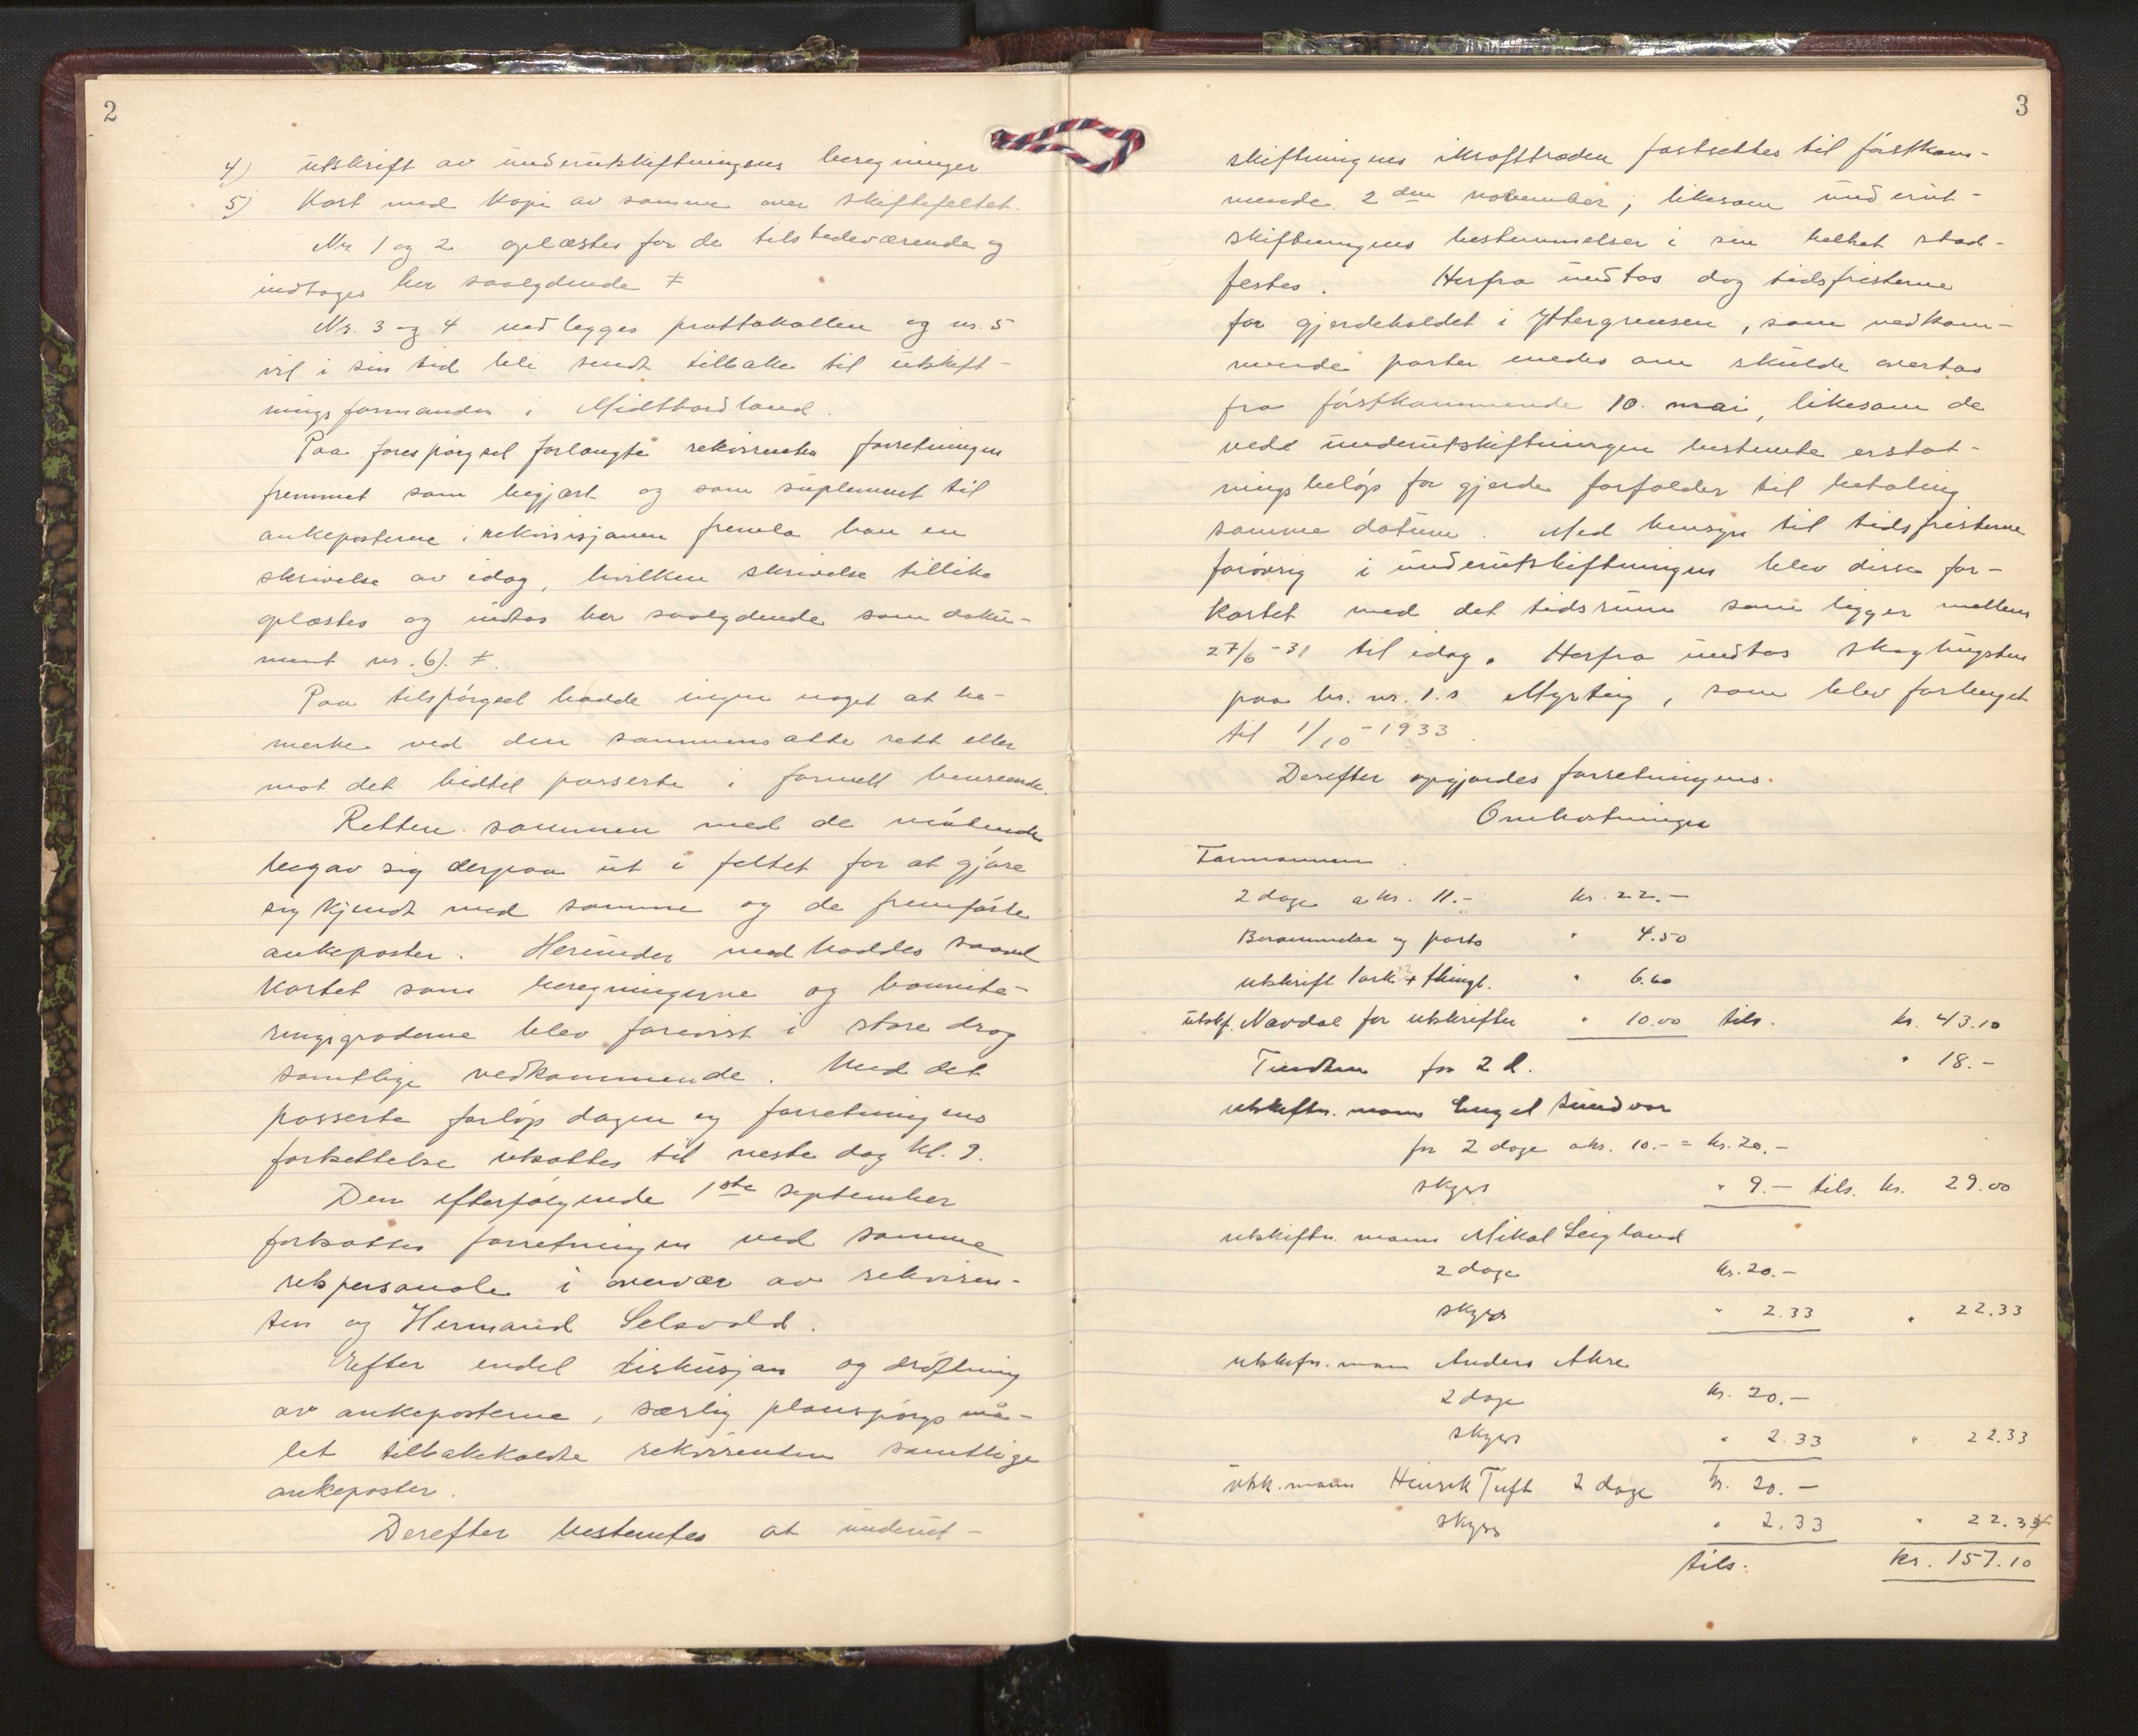 2
4) utskrift av underutskiftningens beregninger
5) Kart med Kopi av samme over skiftefeltet.
Nr. 1 og 2 oplæstes for de tilstedeværende og
indtages her saalydende ≠
Nr. 3 og 4 vedlegges prottokollen og nr. 5
vil i sin tid bli sendt tilbake til utskift-
ningsformanden i Midthordland.
Paa forespørgsel forlangte rekvirenten forretningen
fremmet som begjært og som suplement til
ankeposterne i rekvisisjonen fremla han en
skrivelse av idag, hvilken skrivelse tillike
oplæstes og indtas her saalydende som doku-
ment nr. 6). ≠.
Paa tilspørgsel hadde ingen noget at be-
merke ved den sammensatte rett eller
mot det hidtil passerte i formell henseende.
Retten sammen med de møtende
begav sig derpaa ut i feltet for at gjøre
sig kjendt med samme og de fremførte
ankeposter. Herunder medhaddes saavel
kartet som beregningerne og bonnite-
ringsgraderne blev forevist i store drag
samtlige vedkommende. Med det
passerte forløp dagen og forretningens
fortsettelse utsattes til neste dag kl. 9.
Den efterfølgende 1ste september
fortsattes forretningen ved samme
retspersonale i overvær av rekviren-
ten og Hermand Selsvold.
Efter endel diskusjon og drøftning
av ankeposterne, særlig planspørgsmå-
let tilbakekaldte rekvirenten samtlige
ankeposter.
Derefter bestemtes at underut-
3
skiftningens ikrafttræden fastsettes til førstkom-
mende 2den november; likesom underut-
skiftningens bestemmelser i sin helhet stad-
festes. Herfra undtas dog tidsfristerne
for gjerdeholdet i Yttergrensen, som vedkom-
mende parter enedes om skulde overtas
fra førstkommende 10. mai, likesom de
ved underutskiftningen bestemte erstat-
ningsbeløp for gjerde forfalder til betaling
samme datum. Med hensyn til tidsfristerne
forøvrig i underutskiftningen blev disse for-
kortet med det tidsrum som ligger mellem
27/6-31 til idag. Herfra undtas skoghugsten
paa br. nr. 1.s Myrteig, som blev forlenget
til 1/10-1933.
Derefter opgjordes forretningens.
Omkostninger
Formannen.
2 dage a kr. 11.- kr. 22.-
Berammelse og porto " 4.50
utskrift 1 ark + thingl. " 6.60
utskf. Navdal for utskrifter " 10.00 tils. kr. 43.10
Tændem for 2 d. " 18.-
utskiftn. mann Engel Sundvor
for 2 dage a kr. 10.- = kr. 20.-
skyss " 9.- tils. kr. 29.00
utskiftn. mann Mikal Leigland
2 dage kr. 20.-
skyss " 2.33 " 22.33
utskifn. mann Anders Akre
2 dage kr. 20.-
skyss " 2.33 " 22.33
utsk. mann Henrik Tuft 2 dage kr. 20.-
skyss " 2.33 " 22.34
tils: kr. 157.10